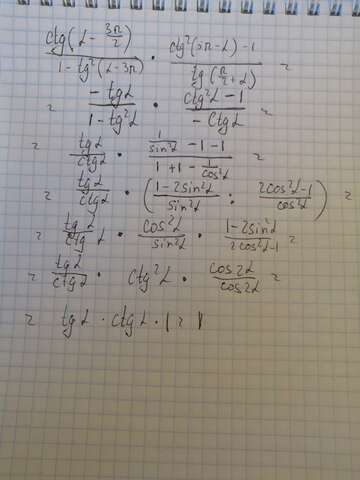 ctg(α - 3π/2) / 1 - tg²(α - 3π) · ctg²(3π - α) - 1 / tg(π/2 + α) =
= - tgα / 1 - tg²α · ctg²α - 1 / - Ctgα =
= tgα / ctgα · 1/sin²α - 1 - 1 / 1 + 1 - 1/cos²α =
= tgα / ctgα · (1 - 2sin²α / sin²α : 2cos²α - 1 / cos²α) =
= tgα / ctgα · cos²α / sin²α · 1 - 2sin²α / 2cos²α - 1 =
= tgα / ctgα · ctg²α · cos2α / cos2α =
= tgα · ctgα · 1 = 1